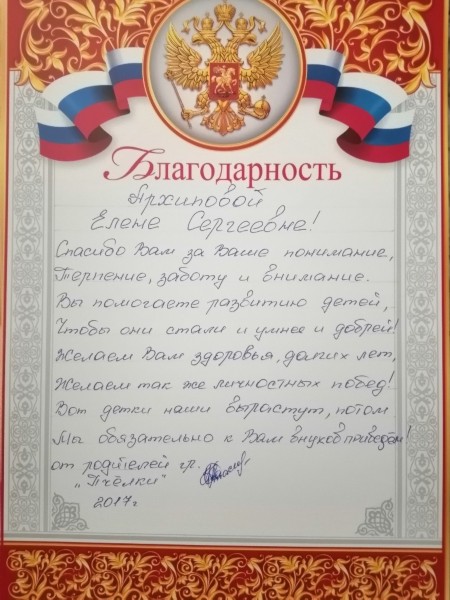 Благодарность
Архиповой
Елене Сергеевне!
Спасибо Вам за Ваше понимание,
Терпение, заботу и внимание.
Вы помогаете развитию детей,
Чтобы они стали и умнее и добрей!
Желаем Вам здоровья, долгих лет,
Желаем так же личностных побед!
Вот детки наши вырастут, потом
Мы обязательно к Вам внуков приведём!
от родителей гр.
"Пчёлки"
2017г